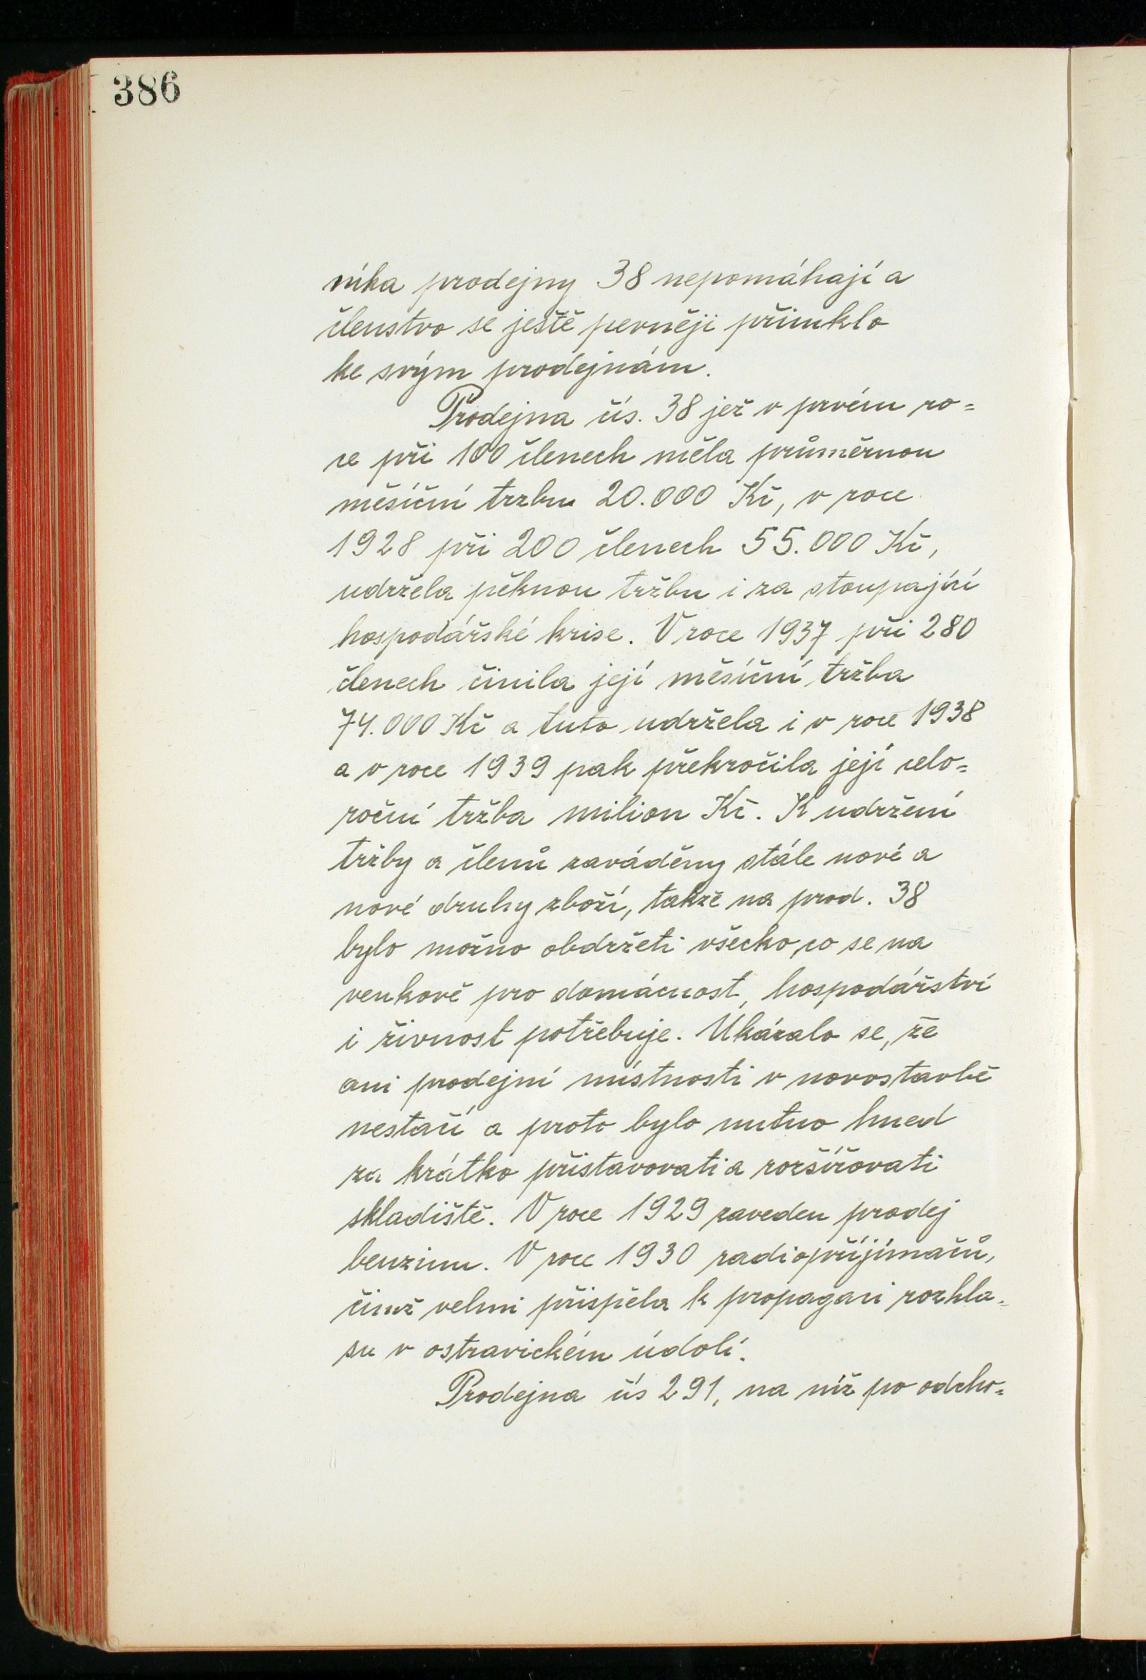 386
níka prodejny 38 nepomáhají a
členstvo se ještě pevněji přimklo
ke svým prodejnám.
Prodejna čís. 38 jež v prvém ro=
ce při 100 členech měla průměrnou
měsíční tržbu 20.000 Kč, v roce
1928 při 200 členech 55.000 Kč,
udržela pěknou tržbu i za stoupající
hospodářské krise. V roce 1937 při 280
členech činila její měsíční tržba
74.000 Kč a tuto udržela i v roce 1938
a v roce 1939 pak překročila její celo=
roční tržba milion Kč. K udržení
tržby a členů zaváděny stále nové a
nové druhy zboží, takže na prod. 38
bylo možno obdržeti všecko, co se na
venkově pro domácnost, hospodářství
i živnost potřebuje. Ukázalo se, že
ani prodejní místnosti v novostavbě
nestačí a proto bylo nutno hned
za krátko přistavovati a rozšiřovati
skladiště. V roce 1929 zaveden prodej
benzinu. V roce 1930 radiopřijímačů,
čímž velmi přispěla k propagaci rozhla=
su v ostravickém údolí.
Prodejna čís 291, na níž po odcho=